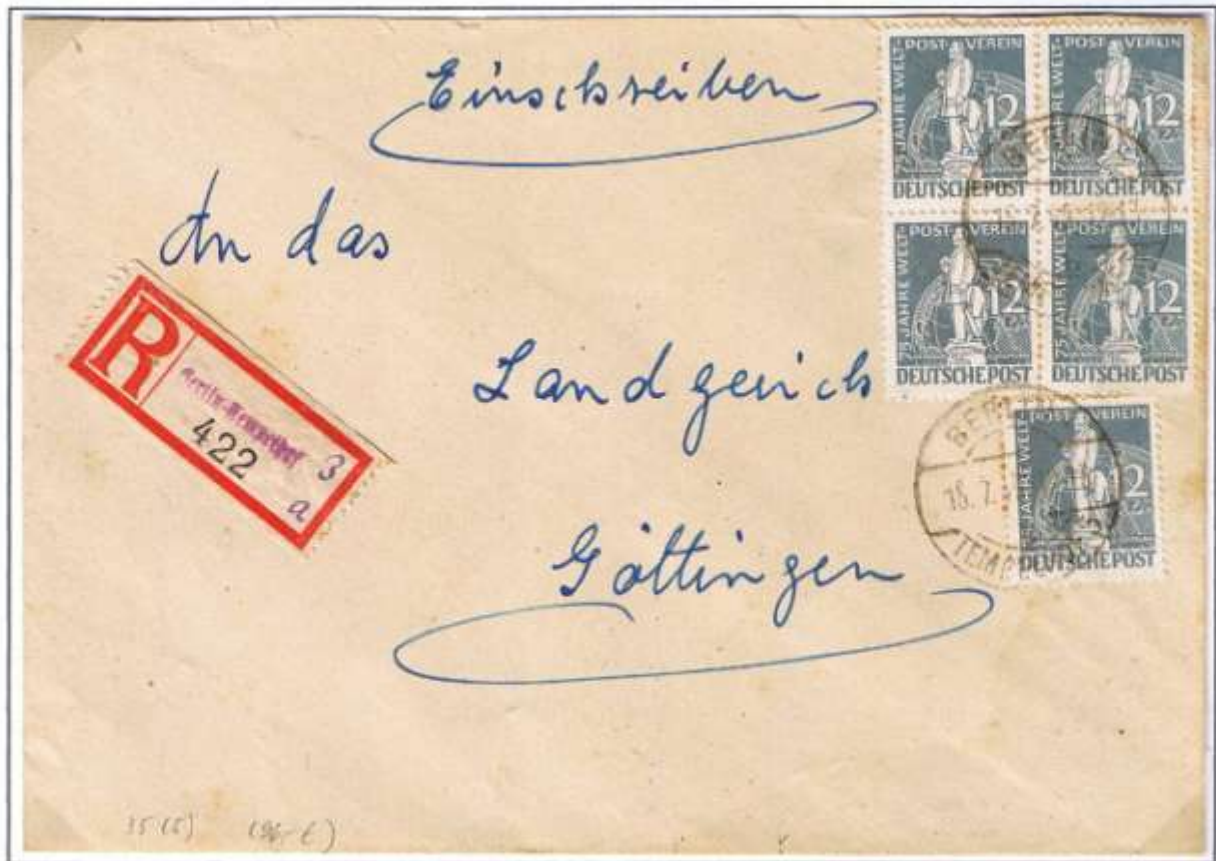 Einschreiben
An das
Landgericht
Göttingen
R
Berlin-Tempelhof 3
422
a
75 JAHRE WELT-POST VEREIN
12
DEUTSCHE POST
75 JAHRE WELT-POST VEREIN
12
DEUTSCHE POST
75 JAHRE WELT-POST VEREIN
12
DEUTSCHE POST
75 JAHRE WELT-POST VEREIN
12
DEUTSCHE POST
BERLIN
18.7.
TEMPELHOF
JAHRE WELT-POST VEREIN
12
DEUTSCHE POST
35 (5)